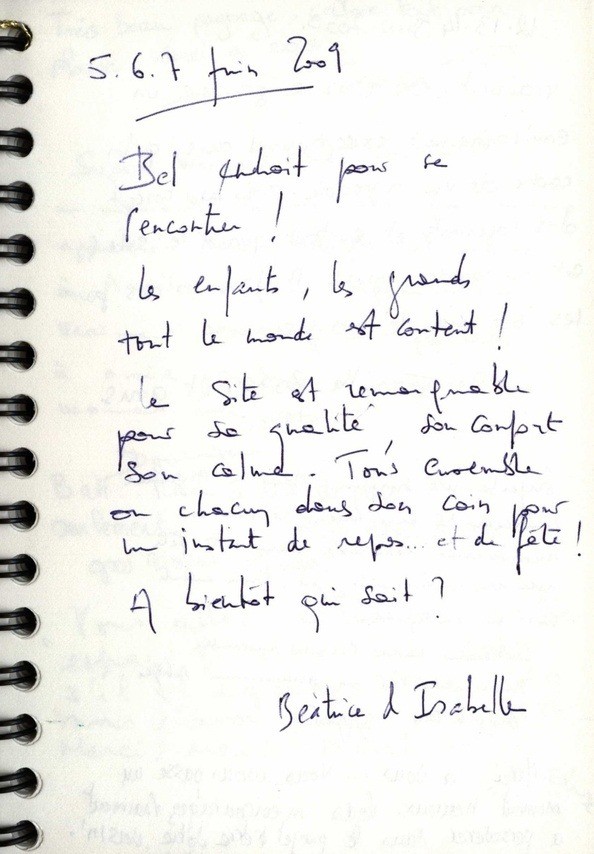 5.6.7 juin 2009
Bel endroit pour se
rencontrer !
Les enfants, les grands
tout le monde est content !
Le Site est remarquable
pour sa qualité, son confort
son calme. Tous ensemble
ou chacun dans son coin pour
un instant de repos... et de fête !
A bientôt qui sait ?
Béatrice & Isabelle